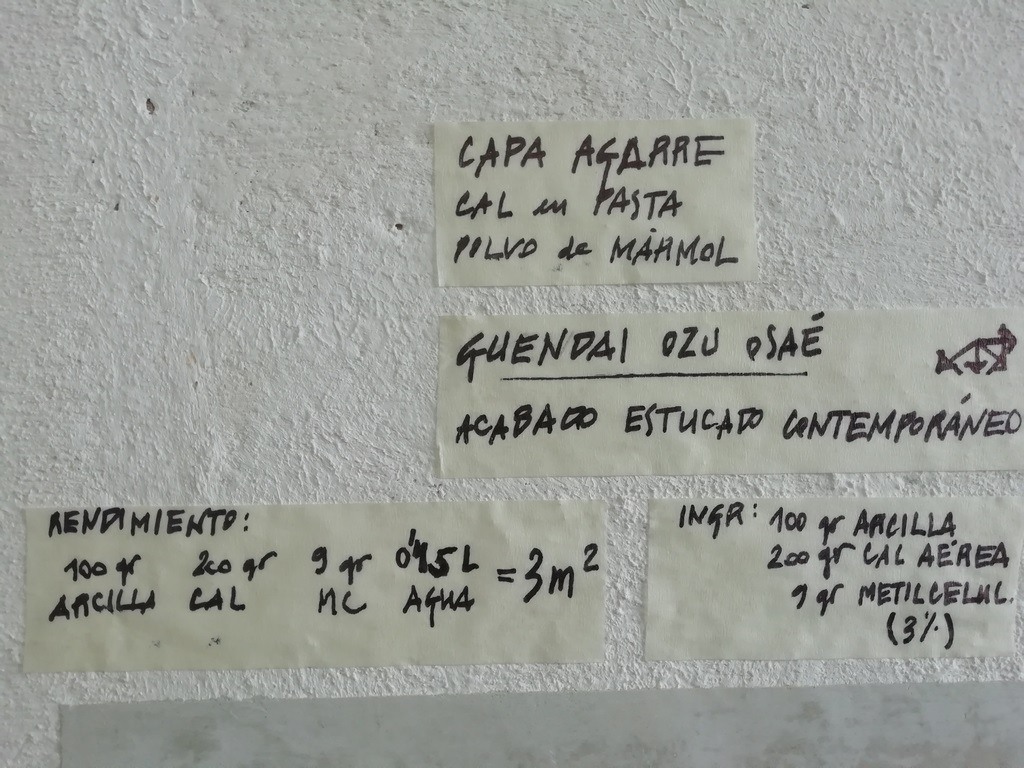 CAPA AGARRE
CAL en PASTA
POLVO de MÁRMOL
GUENDAI OZU OSAÉ
ACABADO ESTUCADO CONTEMPORÁNEO
RENDIMIENTO:
100 gr 200 gr 9 gr 0'45 L = 3m²
ARCILLA CAL MC AGUA
INGR: 100 gr ARCILLA
200 gr CAL AÉREA
9 gr METILCELUL.
(3%)